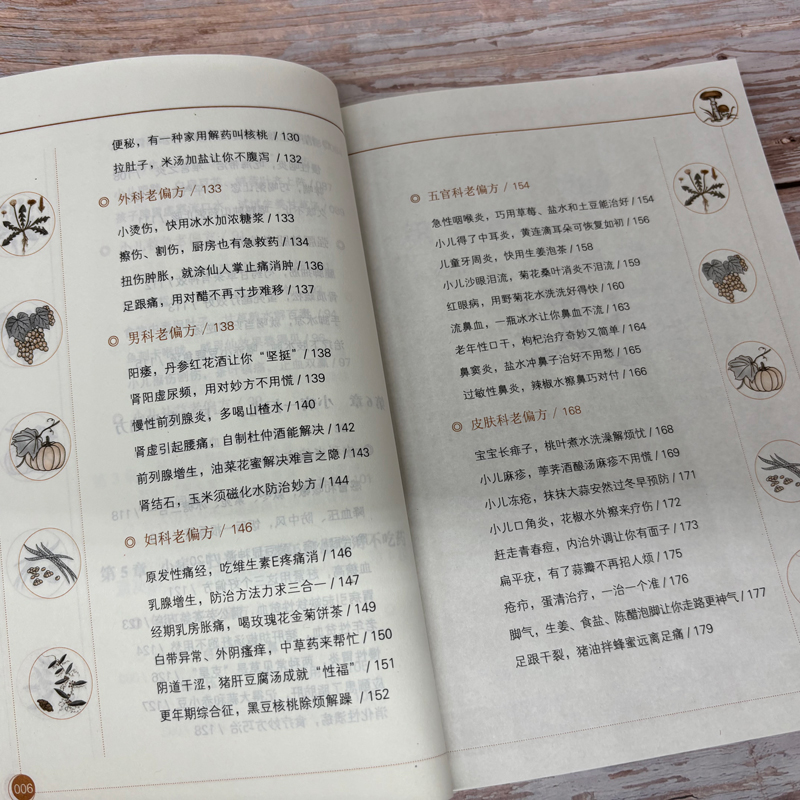 便秘，有一种家用解药叫核桃 / 130
拉肚子，米汤加盐让你不腹泻 / 132
外科老偏方 / 133
小烫伤，快用冰水加浓糖浆 / 133
擦伤、割伤，厨房也有急救药 / 134
扭伤肿胀，就涂仙人掌止痛消肿 / 136
足跟痛，用对醋不再寸步难移 / 137
男科老偏方 / 138
阳痿，丹参红花酒让你“坚挺” / 138
肾阳虚尿频，用对妙方不用慌 / 139
慢性前列腺炎，多喝山楂水 / 140
肾虚引起腰痛，自制杜仲酒能解决 / 142
前列腺增生，油菜花蜜解决难言之隐 / 143
肾结石，玉米须磁化水防治妙方 / 144
妇科老偏方 / 146
原发性痛经，吃维生素E疼痛消 / 146
乳腺增生，防治方法力求三合一 / 147
经期乳房胀痛，喝玫瑰花金菊饼茶 / 149
白带异常、外阴瘙痒，中草药来帮忙 / 150
阴道干涩，猪肝豆腐汤成就“性福” / 151
更年期综合征，黑豆核桃除烦解躁 / 152
006
五官科老偏方 / 154
急性咽喉炎，巧用草莓、盐水和土豆能治好 / 154
小儿得了中耳炎，黄连滴耳朵可恢复如初 / 156
儿童牙周炎，快用生姜泡茶 / 158
小儿沙眼泪流，菊花桑叶消炎不泪流 / 159
红眼病，用野菊花水洗洗好得快 / 160
流鼻血，一瓶冰水让你鼻血不流 / 163
老年性口干，枸杞治疗奇妙又简单 / 164
鼻窦炎，盐水冲鼻子治好不用愁 / 165
过敏性鼻炎，辣椒水擦鼻巧对付 / 166
皮肤科老偏方 / 168
宝宝长痱子，桃叶煮水洗澡解烦忧 / 168
小儿麻疹，荸荠酒酿汤麻疹不用慌 / 169
小儿冻疮，抹抹大蒜安然过冬早预防 / 171
小儿口角炎，花椒水外擦来疗伤 / 172
赶走青春痘，内治外调让你有面子 / 173
扁平疣，有了蒜瓣不再招人烦 / 175
疮疖，蛋清治疗，一治一个准 / 176
脚气，生姜、食盐、陈醋泡脚让你走路更神气 / 177
足跟干裂，猪油拌蜂蜜远离足痛 / 179